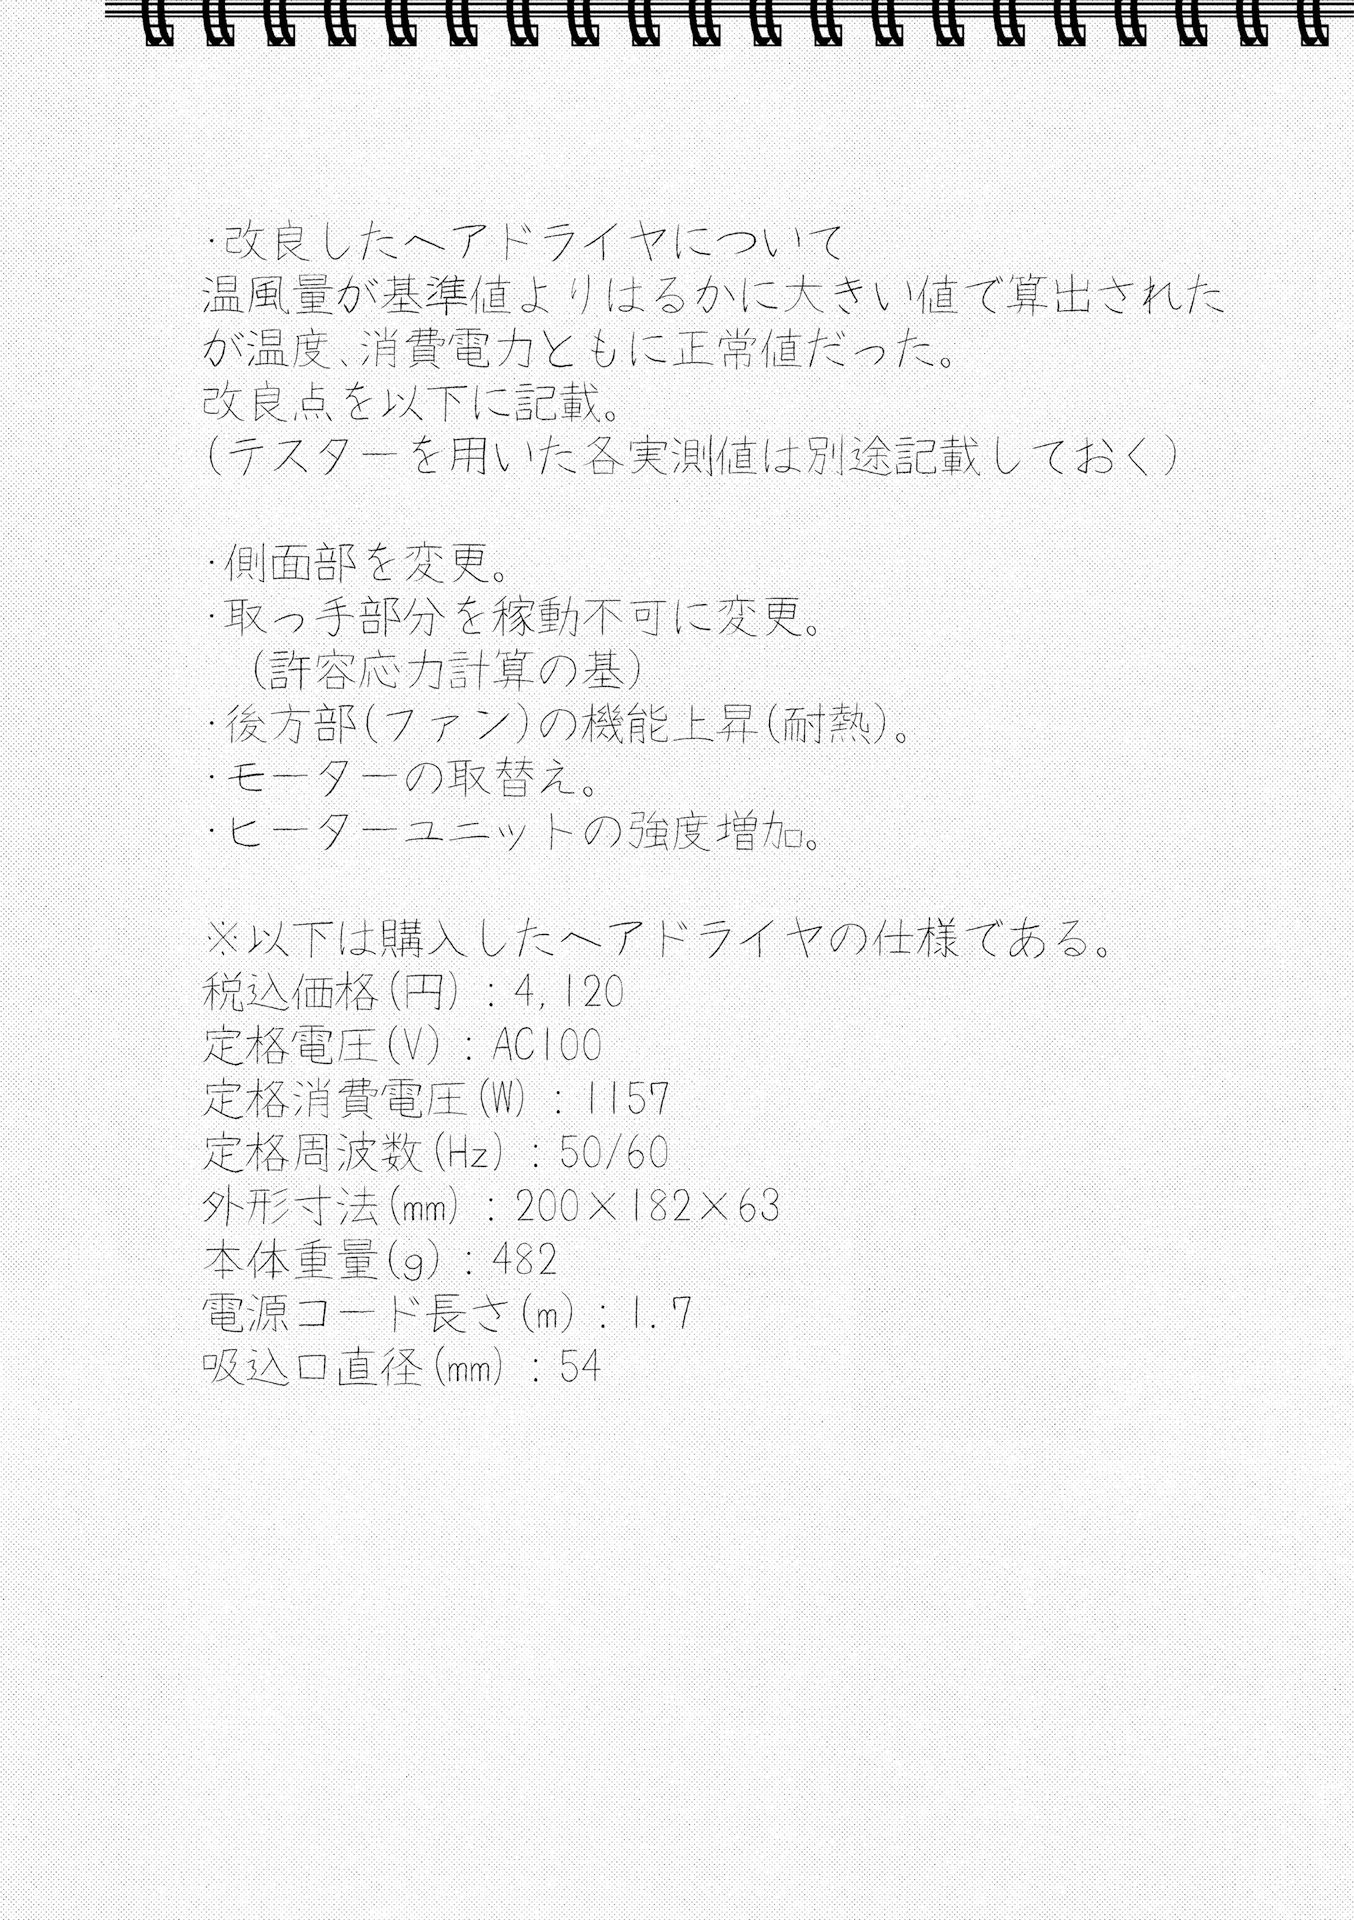 ・改良したヘアドライヤについて
温風量が基準値よりはるかに大きい値で算出された
が温度、消費電力ともに正常値だった。
改良点を以下に記載。
(テスターを用いた各実測値は別途記載しておく)
・側面部を変更。
・取っ手部分を稼動不可に変更。
(許容応力計算の基)
・後方部(ファン)の機能上昇(耐熱)。
・モーターの取替え。
・ヒーターユニットの強度増加。
※以下は購入したヘアドライヤの仕様である。
税込価格(円):4,120
定格電圧(V):AC100
定格消費電圧(W):1157
定格周波数(Hz):50/60
外形寸法(mm):200×182×63
本体重量(g):482
電源コード長さ(m):1.7
吸込口直径(mm):54